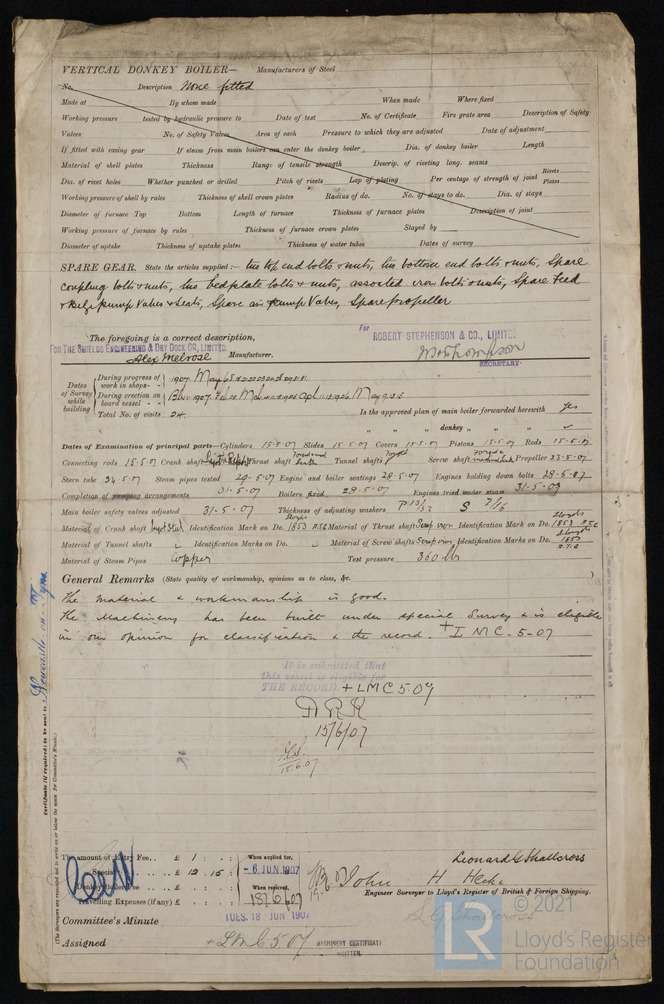 VERTICAL DONKEY BOILER— Manufacturers of Steel
No. Description None fitted
Made at By whom made When made Where fixed
Working pressure tested by hydraulic pressure to Date of test No. of Certificate Fire grate area Description of Safety
Valves No. of Safety Valves Area of each Pressure to which they are adjusted Date of adjustment
If fitted with easing gear If steam from main boilers can enter the donkey boiler Dia. of donkey boiler Length
Material of shell plates Thickness Range of tensile strength Descrip. of riveting long. seams
Dia. of rivet holes Whether punched or drilled Pitch of rivets Lap of plating Per centage of strength of joint Rivets Plates
Working pressure of shell by rules Thickness of shell crown plates Radius of do. No. of stays to do. Dia. of stays
Diameter of furnace Top Bottom Length of furnace Thickness of furnace plates Description of joint
Working pressure of furnace by rules Thickness of furnace crown plates Stayed by
Diameter of uptake Thickness of uptake plates Thickness of water tubes Dates of survey
SPARE GEAR. State the articles supplied:— two top end bolts & nuts, two bottom end bolts & nuts, Spare
Coupling bolts & nuts, two bedplate bolts & nuts, assorted iron bolts & nuts, Spare Feed
& Bilge pump Valves & Seats, Spare air pump Valves, Spare propeller
For
The foregoing is a correct description, ROBERT STEPHENSON & CO., LIMITED
FOR THE SHIELDS ENGINEERING & DRY DOCK CO., LIMITED.
Alex Melrose Manufacturer. SECRETARY.
Dates of Survey while building
During progress of work in shops—
1907. May
During erection on board vessel—
1907.
Total No. of visits 24.
Is the approved plan of main boiler forwarded herewith yes
" " " donkey " " "
Dates of Examination of principal parts—Cylinders 15.5.07 Slides 15.5.07 Covers 15.5.07 Pistons 15.5.07 Rods 15.5.07
Connecting rods 15.5.07 Crank shaft Thrust shaft Tunnel shafts Screw shaft Propeller 23.5.07
Stern tube 24.5.07 Steam pipes tested 29.5.07 Engine and boiler seatings 28.5.07 Engines holding down bolts 28.5.07
Completion of pumping arrangements 31.5.07 Boilers fixed 28.5.07 Engines tried under steam 31.5.07
Main boiler safety valves adjusted 31.5.07 Thickness of adjusting washers P 13/32 S 7/16
Material of Crank shaft Ingot Steel Identification Mark on Do. Lloyds 1853 Material of Thrust shaft Scrap iron Identification Mark on Do. Lloyds 1853
Material of Tunnel shafts Identification Marks on Do. Material of Screw shafts Scrap iron Identification Marks on Do. Lloyds 1853
Material of Steam Pipes Copper Test pressure 360 lbs
General Remarks (State quality of workmanship, opinions as to class, &c.
The material & workmanship is good.
The Machinery has been built under special Survey & is eligible
in our opinion for classification & the record. + L M C - 5-07
It is submitted that
this vessel is eligible for
THE RECORD. + LMC 5.07
15/6/07
15.6.07
Certificate (if required) to be sent to Newcastle-on-Tyne
(The Surveyors are requested not to write on or below the space for Committee's Minute.)
The amount of Entry Fee.. £ 1 : : When applied for,
Special .. .. £ 12 : 15 : - 6 JUN 1907
Donkey Boiler Fee .. £ : : When received,
Travelling Expenses (if any) £ : : 18/6/07
Leonard G Shallcross
John H Heck
Engineer Surveyor to Lloyd's Register of British & Foreign Shipping.
Committee's Minute TUES. 18 JUN 1907
Assigned + LMC 5.07
MACHINERY CERTIFICATE
WRITTEN.
LR
© 2021
Lloyd's Register
Foundation